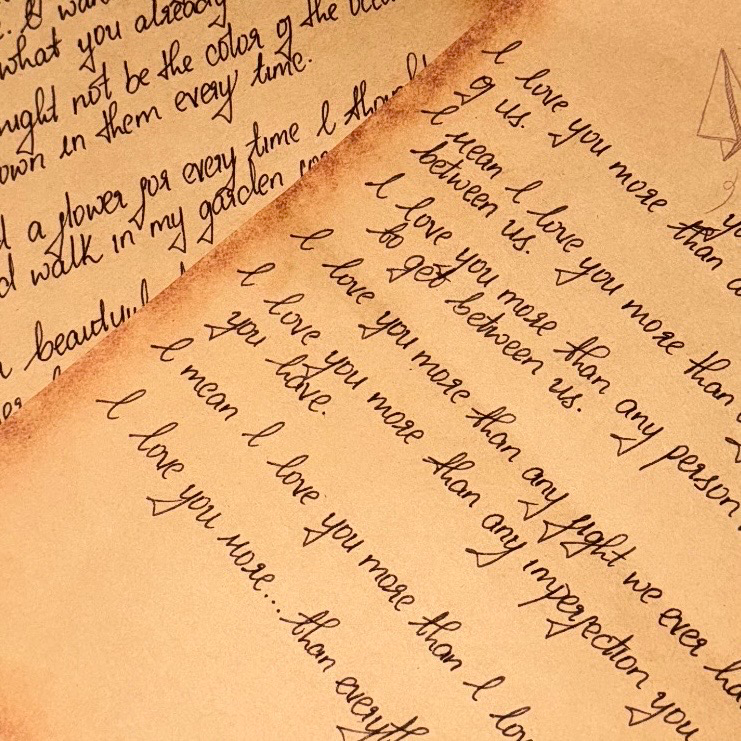 what you already
might not be the color of the
own in them every time.
a flower for every time I
walk in my garden
I love you more than
of us.
I mean I love you more than
between us.
I love you more than any person
to get between us.
I love you more than any fight we ever
I love you more than any imperfection you
you have.
I mean I love you more than I
I love you more... than